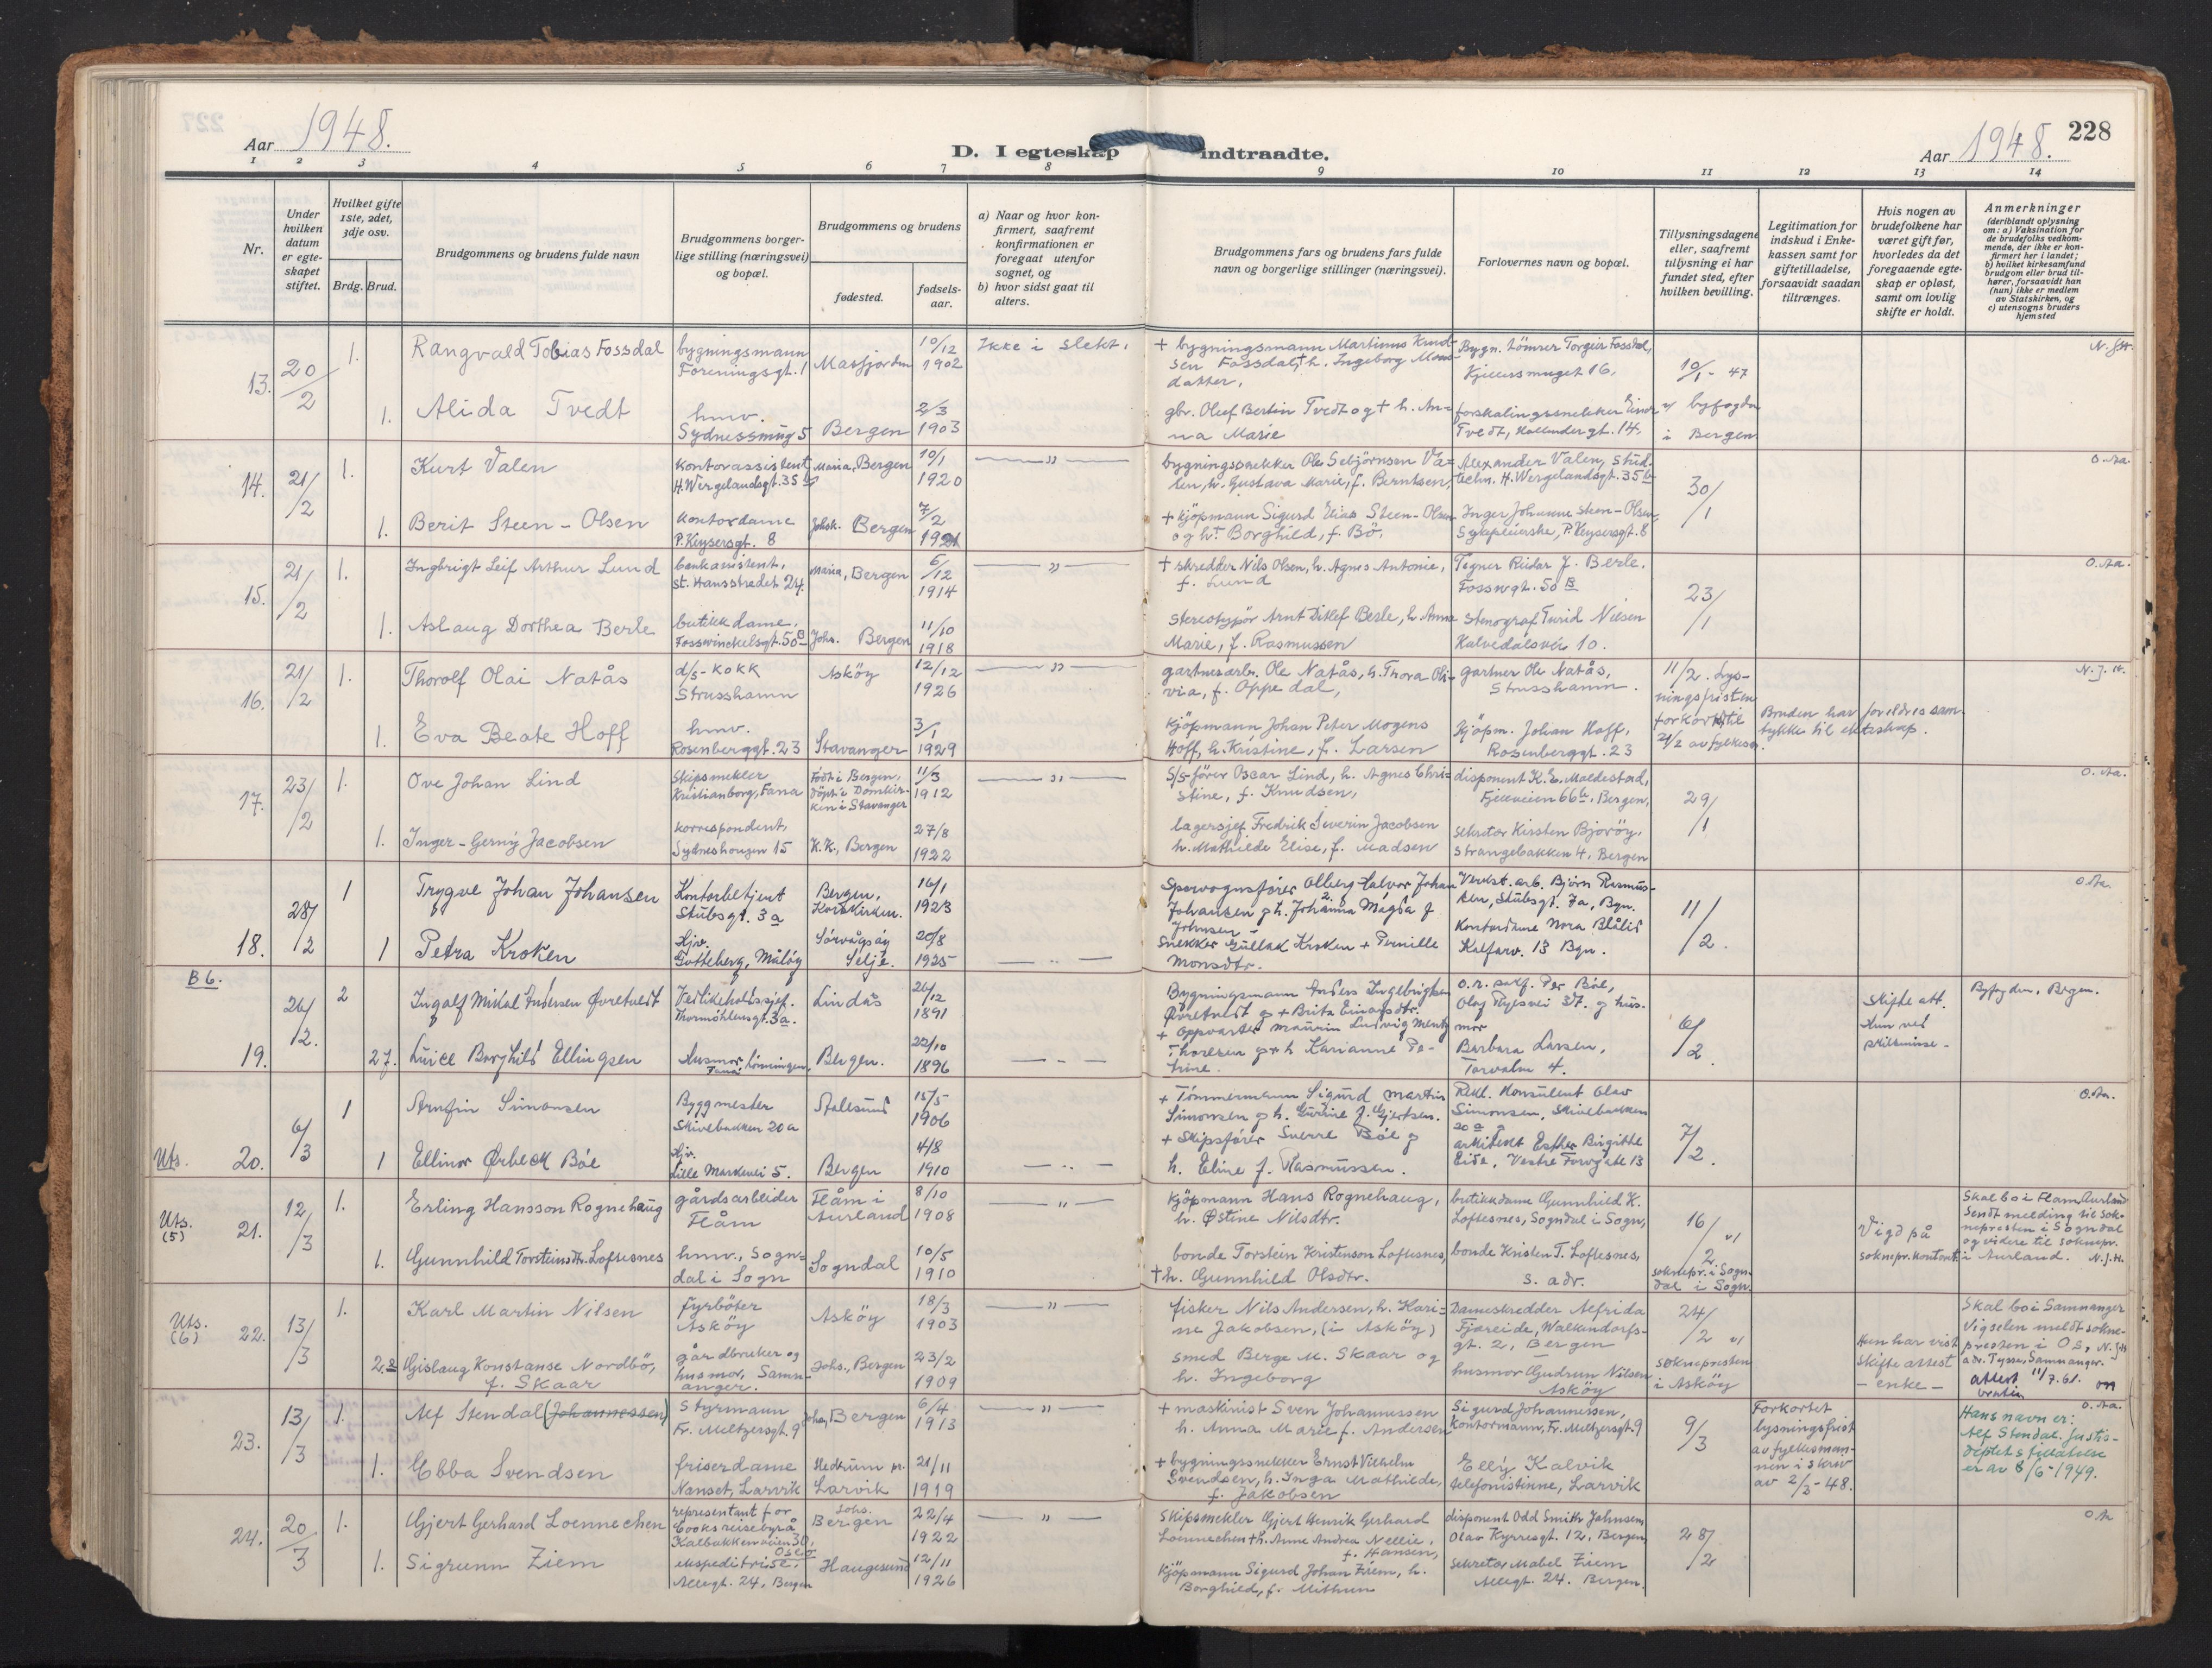 228
Aar 1948.
D. I egteskap indtraadte.
Aar 1948.
1 2 3 4 5 6 7 8 9 10 11 12 13 14
Nr.
Under hvilken datum er egteskapet stiftet.
Hvilket gifte 1ste, 2det, 3dje osv.
Brdg. Brud.
Brudgommens og brudens fulde navn
Brudgommens borgerlige stilling (næringsvei) og bopæl.
Brudgommens og brudens
fødested.
fødselsaar.
a) Naar og hvor konfirmert, saafremt konfirmationen er foregaat utenfor sognet, og
b) hvor sidst gaat til alters.
Brudgommens fars og brudens fars fulde navn og borgerlige stillinger (næringsvei).
Forlovernes navn og bopæl.
Tillysningsdagene eller, saafremt tillysning ei har fundet sted, efter hvilken bevilling.
Legitimation for indskud i Enkekassen samt for giftetilladelse, forsaavidt saadan tiltrænges.
Hvis nogen av brudefolkene har været gift før, hvorledes da det foregaaende egteskap er opløst, samt om lovlig skifte er holdt.
Anmerkninger
(deriblandt oplysning om: a) Vaksination for de brudefolks vedkommende, der ikke er konfirmert her i landet; b) hvilket kirkesamfund brudgom eller brud tilhører, forsaavidt han (hun) ikke er medlem av Statskirken, og c) utensogns bruders hjemsted
13. 20/2 1. Rangvald Tobias Fossdal bygningsmann Foreningsgt. 1 Masfjorden 10/12 1902 Ikke i slekt.
+ bygningsmann Martinus Knudsen Fossdal, + h. Ingeborg Monsdatter,
Torgeir Fossdal, 16. 10/1-47
1. Alida Tvedt hmv. Sydnessmug 5 Bergen 2/3 1903
gbr. Oluf Bertin Tvedt og + h. Anna Marie
Tvedt, Hollendergt. 14. v/ byfogden i Bergen
14. 21/2 1. Kurt Valen Kontorassistent H. Wergelandsgt. 35 b Maria, Bergen 10/1 1920 — " —
bygningssnekker Ole Sebjörnsen Valen, h. Gustava Marie, f. Berntsen,
Alexander Valen, stud. techn. H. Wergelandsgt. 35 b 30/1 O. Aa.
1. Berit Steen-Olsen Kontordame P. Keysersgt. 8 Johsk. Bergen 7/2 1921
+ kjöpmann Sigurd Elias Steen-Olsen og h. + Borghild, f. Bö.
Inger Johanne Steen-Olsen, Sykepleierske, P. Keysersgt. 8
15. 21/2 1. Ingbrigt Leif Arthur Lund bankassistent, St. Hansstredet 24. Maria, Bergen 6/12 1914 — " —
+ skredder Nils Olsen, h. Agnes Antonie, f. Lund
Tegner Reidar J. Berle. Fosswgt. 50 B 23/1 O. Aa.
1. Aslaug Dorthea Berle butikkdame, Fosswinckelsgt. 50 B Joh. Bergen 11/10 1918
Stereotypör Arnt Ditlef Berle, h. Anna Marie, f. Rasmussen
stenograf Turid Nilsen Kalvedalsvei 10.
16. 21/2 1. Thorolf Olai Natås d/s-kokk Strusshamn Asköy 12/12 1926 — " —
gartnerarb. Ole Natås, h. Thora Olivia, f. Oppedal,
gartner Ole Natås, Strusshamn. 11/2. Lysningsfristen forkortet til 21/2 av fylkesm.
1. Eva Beate Hoff hmv. Rosenberggt. 23 Stavanger 3/1 1929
Kjöpmann Johan Peter Mogens Hoff, h. Kristine, f. Larsen
Kjöpm. Johan Hoff, Rosenberggt. 23
Bruden har foreldres samtykke til ekteskap.
17. 23/2 1. Ove Johan Lind Skipsmekler Kristianborg, Fana Födt i Bergen, döpt i Domkirken i Stavanger 11/3 1912 — " —
S/s-förer Oscar Lind, h. Agnes Christine, f. Knudsen,
disponent K. E. Maldestad, Fjellveien 66 b, Bergen, 29/1 O. Aa.
1. Inger-Gerny Jacobsen korrespondent, Sydneshougen 15 K.K., Bergen 27/8 1922
lagersjef Fredrik Severin Jacobsen h. Mathilde Elise, f. Madsen
sekretær Kirsten Bjoröy, Strangebakken 4, Bergen
18. 28/2 1 Trygve Johan Johansen Kontorbetjent Stubsgt. 3a Bergen, Korskirken. 16/1 1923
Sporvognsförer Olberg Halvor Johan Johansen og h. Johanna Magda f. Johnsen
Verkst. arb. Björn Rasmussen, Stubsgt. 7a, Bgn. 11/2. O. Aa.
1 Petra Kroken Hjv. Gotteberg, Måløy Sörvågsöy Selje. 20/8 1925
Snekker Gullak Kroken + Pernille Monsdtr.
Kontordame Nora Blålid Kalfarv. 13 Bgn.
B 6.
19. 26/2. 2 Ingolf Mikal Andersen Øvretveit Vedlikeholdssjef. Thormöhlensgt. 3a. Lindås 26/12 1891
Bygningsmann Anders Ingebrigtsen Øvretveit og + Brita Einarsdtr.
Per Böe, Olaf Ryesvei 37. og husmor 6/2. Skifte att. Hun ved skilsmisse - Byfogden, Bergen.
27. Lucie Borghild Ellingsen Husmor, Fana Bergen. 22/10 1896 — " —
+ oppvarter Maurin Ludvig Mentz Thoresen og + h Karianne Petrine.
Barbara Larsen, Torvalm 4.
Uts. 20. 6/3 1 Arnfin Simonsen Byggmester Skivebakken 20a 15/5 1906
+ Tömmermann Sigurd Martin Simonsen og h. Gurine f. Gjertsen.
Rekl. Konsulent Olav Simonsen, Skivebakken 20a og 7/2. O. Aa.
1 Ellinor Ørbeck Böe Hjv. Lille Markevei 5. Bergen 4/8 1910 — " —
+ Skipsförer Sverre Böe og h. Eline f. Rasmussen.
arkitekt Esther Birgitte Eide, Vestre Torvgate 13
Uts. (5) 21. 12/3 1. Erling Hansson Rognehaug gårdsarbeider Flåm Flåm i Aurland 8/10 1908 — " —
Kjöpmann Hans Rognehaug, h. Østine Nilsdtr.
butikkdame Gunnhild K. Loftesnes, Sogndal i Sogn, 16/2 v/ soknepr. i Sogndal i Sogn.
1. Gunnhild Torsteinsdtr. Loftesnes hmv., Sogndal i Sogn Sogndal 10/5 1910
bonde Torstein Kristenson Loftesnes, + h. Gunnhild Olsdtr.
bonde Kristen T. Loftesnes, s. adr.
Vigd på soknepr. kontoret
Skal bo i Flåm, Aurland Sendt melding til soknepresten i Sogndal og videre til soknepr. i Aurland. N. J. H.
Uts. (6) 22. 13/3 1. Karl Martin Nilsen fyrböter Asköy Asköy 18/3 1903 — " —
fisker Nils Andersen, h. Karine Jakobsen, (i Asköy)
Dameskredder Alfrida Fjæreide, Walkendorfsgt. 2, Bergen 24/2 v/ soknepresten i Asköy
2. Gislaug Konstanse Nordbö, f. Skaar gårdbruker og husmor, Samnanger. Johs., Bergen 23/2 1909
smed Berge M. Skaar og h. Ingeborg
husmor Gudrun Nilsen Asköy
Hun har vist skifteattest - enke -
Skal bo i Samnanger Vigselen meldt soknepresten i Os, adr. Tysse, Samnanger. attest 11/7.61.
23. 13/3 1. Alf Stendal (Johannessen) Styrmann Fr. Meltzersgt. 9 Johs, Bergen 6/4 1913 — " —
+ maskinist Sven Johannessen h. Anna Marie f. Andersen
Sigurd Johannessen, Kontormann, Fr. Meltzersgt. 9 9/3 O. Aa.
1. Ebba Svendsen friserdame Nanset, Larvik Hedrum pr. Larvik 21/11 1919
+ bygningssnekker Ernst Vilhelm Svendsen, h. Inga Mathilde, f. Jakobsen
Elly Kalvik telefonistinne, Larvik
Forkortet lysningsfrist av fylkesmannen i skriv av 2/3-48.
Hans navn er: Alf Stendal. Justisdeptets tillatelse er av 8/6-1949.
24. 20/3 1. Gjert Gerhard Loennechen representant for Cooks reisebyrå Kalbakkenveien 30, Oslo Johs. Bergen 22/4 1922 — " —
Skipsmekler Gjert Henrik Gerhard Loennechen + h. Anne Andrea Nellie, f. Hansen,
disponent Odd Smith Johnsen Olav Kyrresgt. 12, Bergen, 28/2
1. Sigrunn Ziem ekspeditrise, Allegt. 24, Bergen Haugesund 12/11 1926
Kjöpmann Sigurd Johan Ziem, h. Borghild, f. Mithun
sekretær Mabel Ziem Allegt. 24. Bergen.